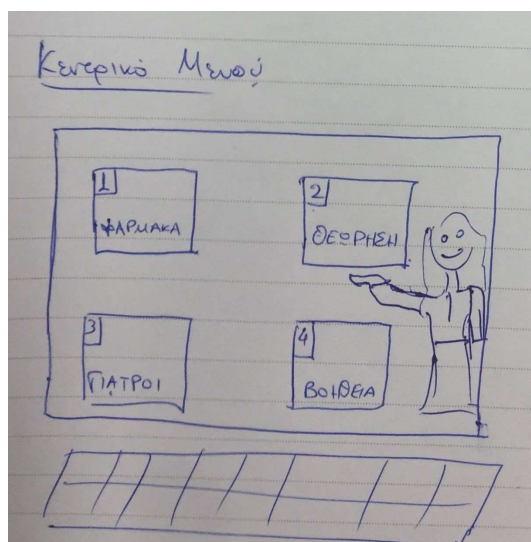 Κεντρικό Μενού
1
ΦΑΡΜΑΚΑ
2
ΘΕΩΡΗΣΗ
3
ΓΙΑΤΡΟΙ
4
ΒΟΗΘΕΙΑ